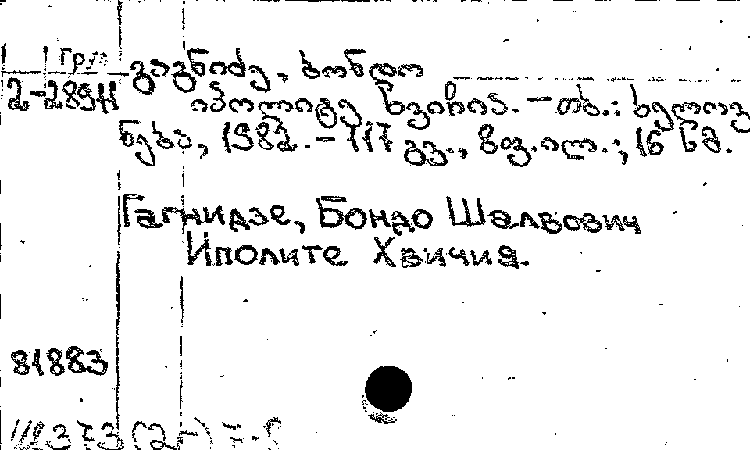 Груз
გაგნიძე, ბონდო
2-28911
იპოლიტე ხვიჩია. – თბ.: ხელოვ
ნება, 1982. – 117 გვ., 8 ფ. ილ.; 16 სმ.
Гагнидзе, Бондо Шалвович
Иполите Хвичия.
81883